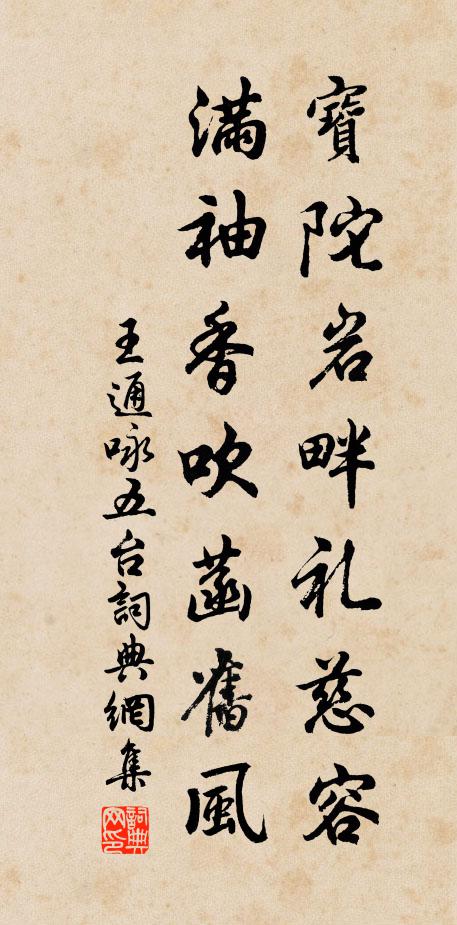 寶陀岩畔礼慈容
滿袖香吹菡舊風
王通咏五台詞典網集
詞典
网印